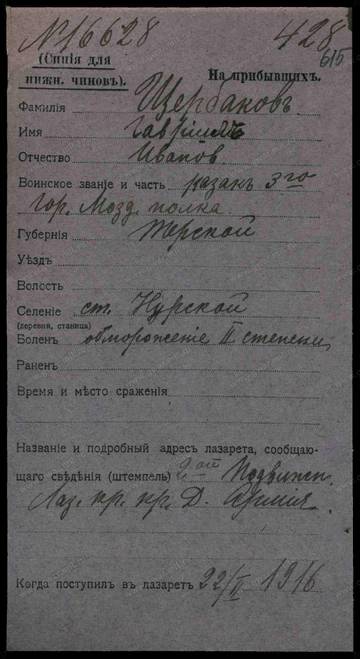 №16628
428
615
(Синія для
нижн. чиновъ).
На прибывшихъ.
Фамилія Щербаковъ
Имя Гавріилъ
Отчество Иванов.
Воинское званіе и часть казакъ 3го
Гор. Мозд. полка
Губернія Терской
Уѣздъ
Волость
Селеніе ст. Курской
(деревня, станица)
Боленъ обмороженіе II степени
Раненъ
Время и мѣсто сраженія
Названіе и подробный адресъ лазарета, сообщаю-
щаго свѣдѣнія (штемпель) Подвижн.
Лаз. кр. кр. Д. Армія
Когда поступилъ въ лазаретъ 22/II 1916